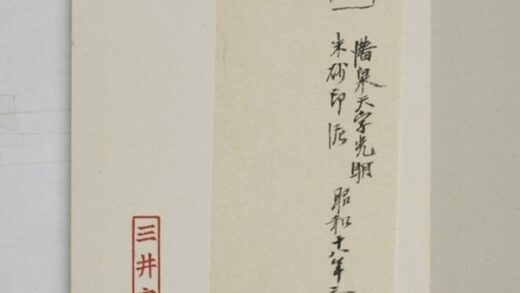 潜泉天字光明
朱砂印泥
昭和十八年
三井